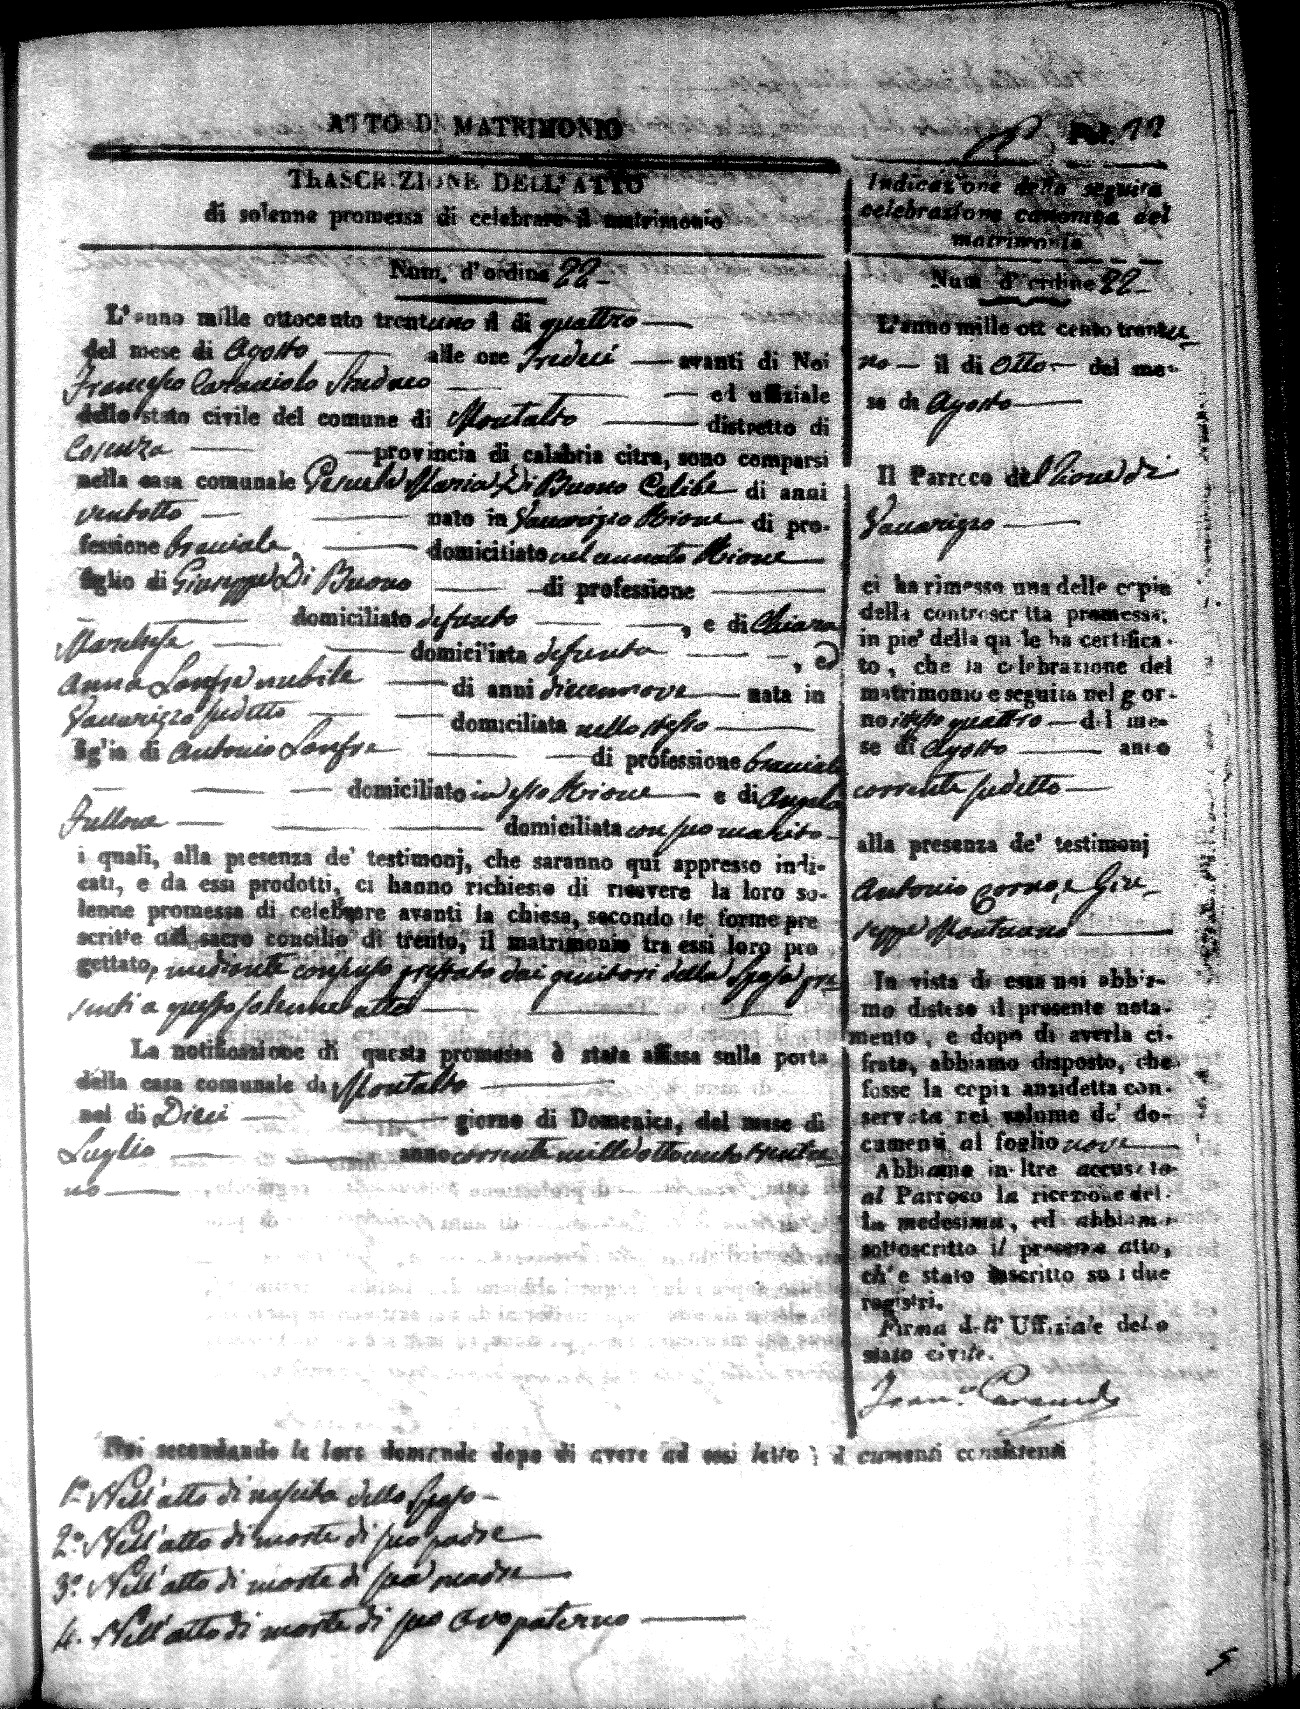 ATTO DI MATRIMONIO
Fol. 22
TRASCRIZIONE DELL'ATTO
di solenne promessa di celebrare il matrimonio
Num. d'ordine 22
L'anno mille ottocento trentuno il di quattro
del mese di Agosto alle ore Tredeci avanti di Noi
Francesco Caracciolo Sindaco ed uffiziale
dello stato civile del comune di Montalto distretto di
Cosenza provincia di calabria citra, sono comparsi
nella casa comunale Maria Di Buono Celibe di anni
ventotto nato in Vaccarizzo Rione di pro-
fessione bracciale domiciliato nel cennato Rione
figlio di Giuseppe Di Buono di professione
domiciliato defunto , e di Chiara
Marchese domiciliata defunta , ed
Anna Lonfre nubile di anni diecennove nata in
Vaccarizzo sudetto domiciliata nello stesso
figlia di Antonio Lonfre di professione bracciale
domiciliato in esso Rione e di Angela
Fullone domiciliata con suo marito
i quali, alla presenza de' testimonj, che saranno qui appresso indi-
cati, e da essi prodotti, ci hanno richiesto di ricevere la loro so-
lenne promessa di celebrare avanti la chiesa, secondo le forme pre
scritte dal sacro concilio di trento, il matrimonio tra essi loro pro
gettato, mediante consenso prestato dai genitori della Sposa pre
senti a questo solenne atto
La notificazione di questa promessa è stata affissa sulla porta
della casa comunale di Montalto
nel di Dieci giorno di Domenica, del mese di
Luglio anno corrente mille ottocento trentu
no
Indicazione della seguita
celebrazione canonica del
matrimonio
Num d'ordine 22
L'anno mille ott cento trentu
no il di otto del me-
se di Agosto
Il Parroco del Rione di
Vaccarizzo
ci ha rimesso una delle copie
della controscritta promessa;
in pie' della quale ha certifica-
to, che la celebrazione del
matrimonio e seguita nel gior-
no istesso quattro del me-
se di Agosto anno
corrente sudetto
alla presenza de' testimonj
Antonio e Giu-
seppe
In vista di essa noi abbia-
mo disteso il presente nota-
mento, e dopo di averla ci-
frata, abbiamo disposto, che
fosse la copia anzidetta con-
servata nel volume de' do-
cumenti al foglio nove
Abbiamo inoltre accusato
al Parroco la ricezione del-
la medesima, ed abbiamo
sottoscritto il presente atto,
ch'e stato inscritto su i due
registri.
Firma dell' Uffiziale dello
stato civile.
Noi secondando le loro domande dopo di avere ad essi letto i documenti consistenti
1.º Nell'atto di nascita dello Sposo
2.º Nell'atto di morte di suo padre
3.º Nell'atto di morte di sua madre
4. Nell'atto di morte di suo Avo paterno
5